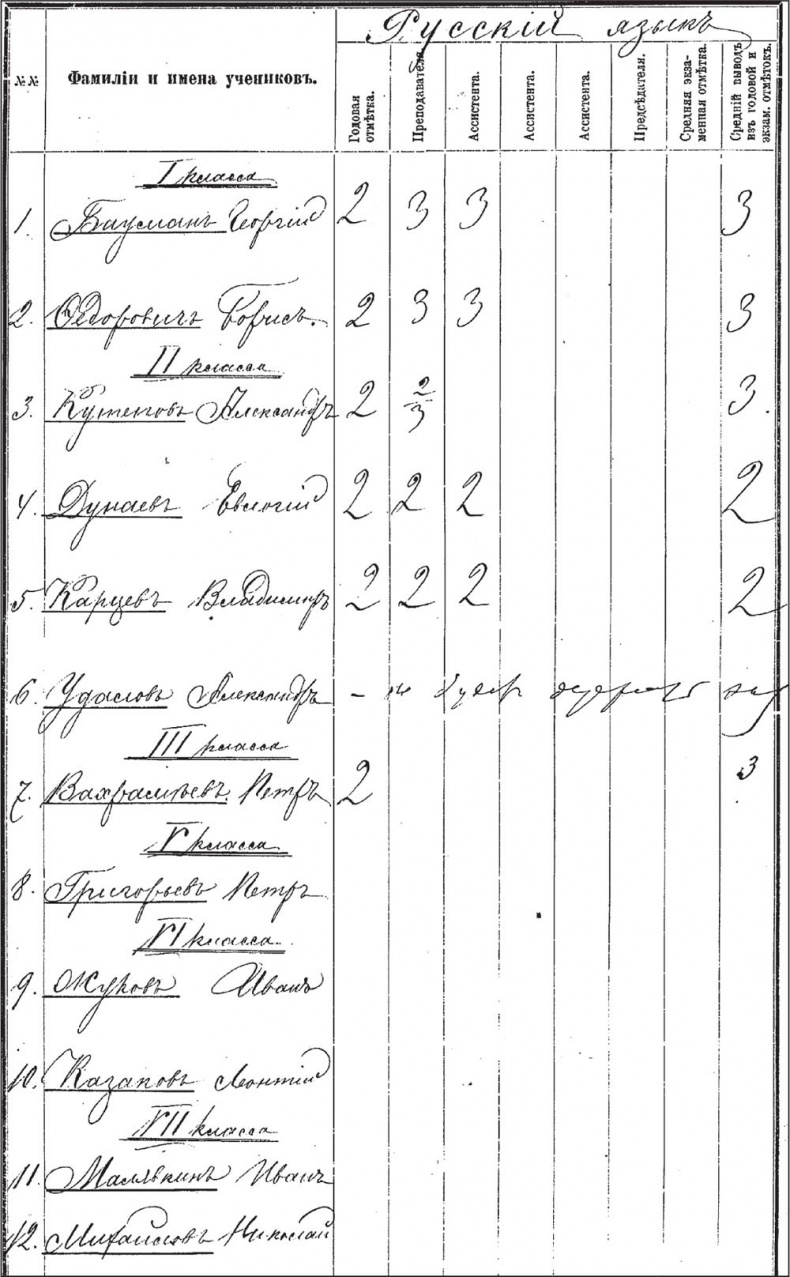 Русскій языкъ
№№ Фамиліи и имена учениковъ. Годовая отмѣтка. Преподавателя. Ассистента. Ассистента. Ассистента. Предсѣдателя. Средняя экзаменная отмѣтка. Средній выводъ изъ годовой и экзам. отмѣтокъ.
I класса
1. Бауманъ Георгій 2 3 3 3
2. Ѳедоровичъ Борисъ. 2 3 3 3
II класса
3. Кутеповъ Александръ 2 2/3 3.
4. Дунаевъ Евлогій 2 2 2 2
5. Карцевъ Владимиръ 2 2 2 2
6. Удаловъ Александръ –
III класса
7. Вахрамѣевъ. Петръ 2 3
V класса
8. Григорьевъ Петръ
VI класса.
9. Жуковъ Иванъ
10. Казаковъ Леонтій
VII класса
11. Малявкинъ Иванъ
12. Михайловъ Николай